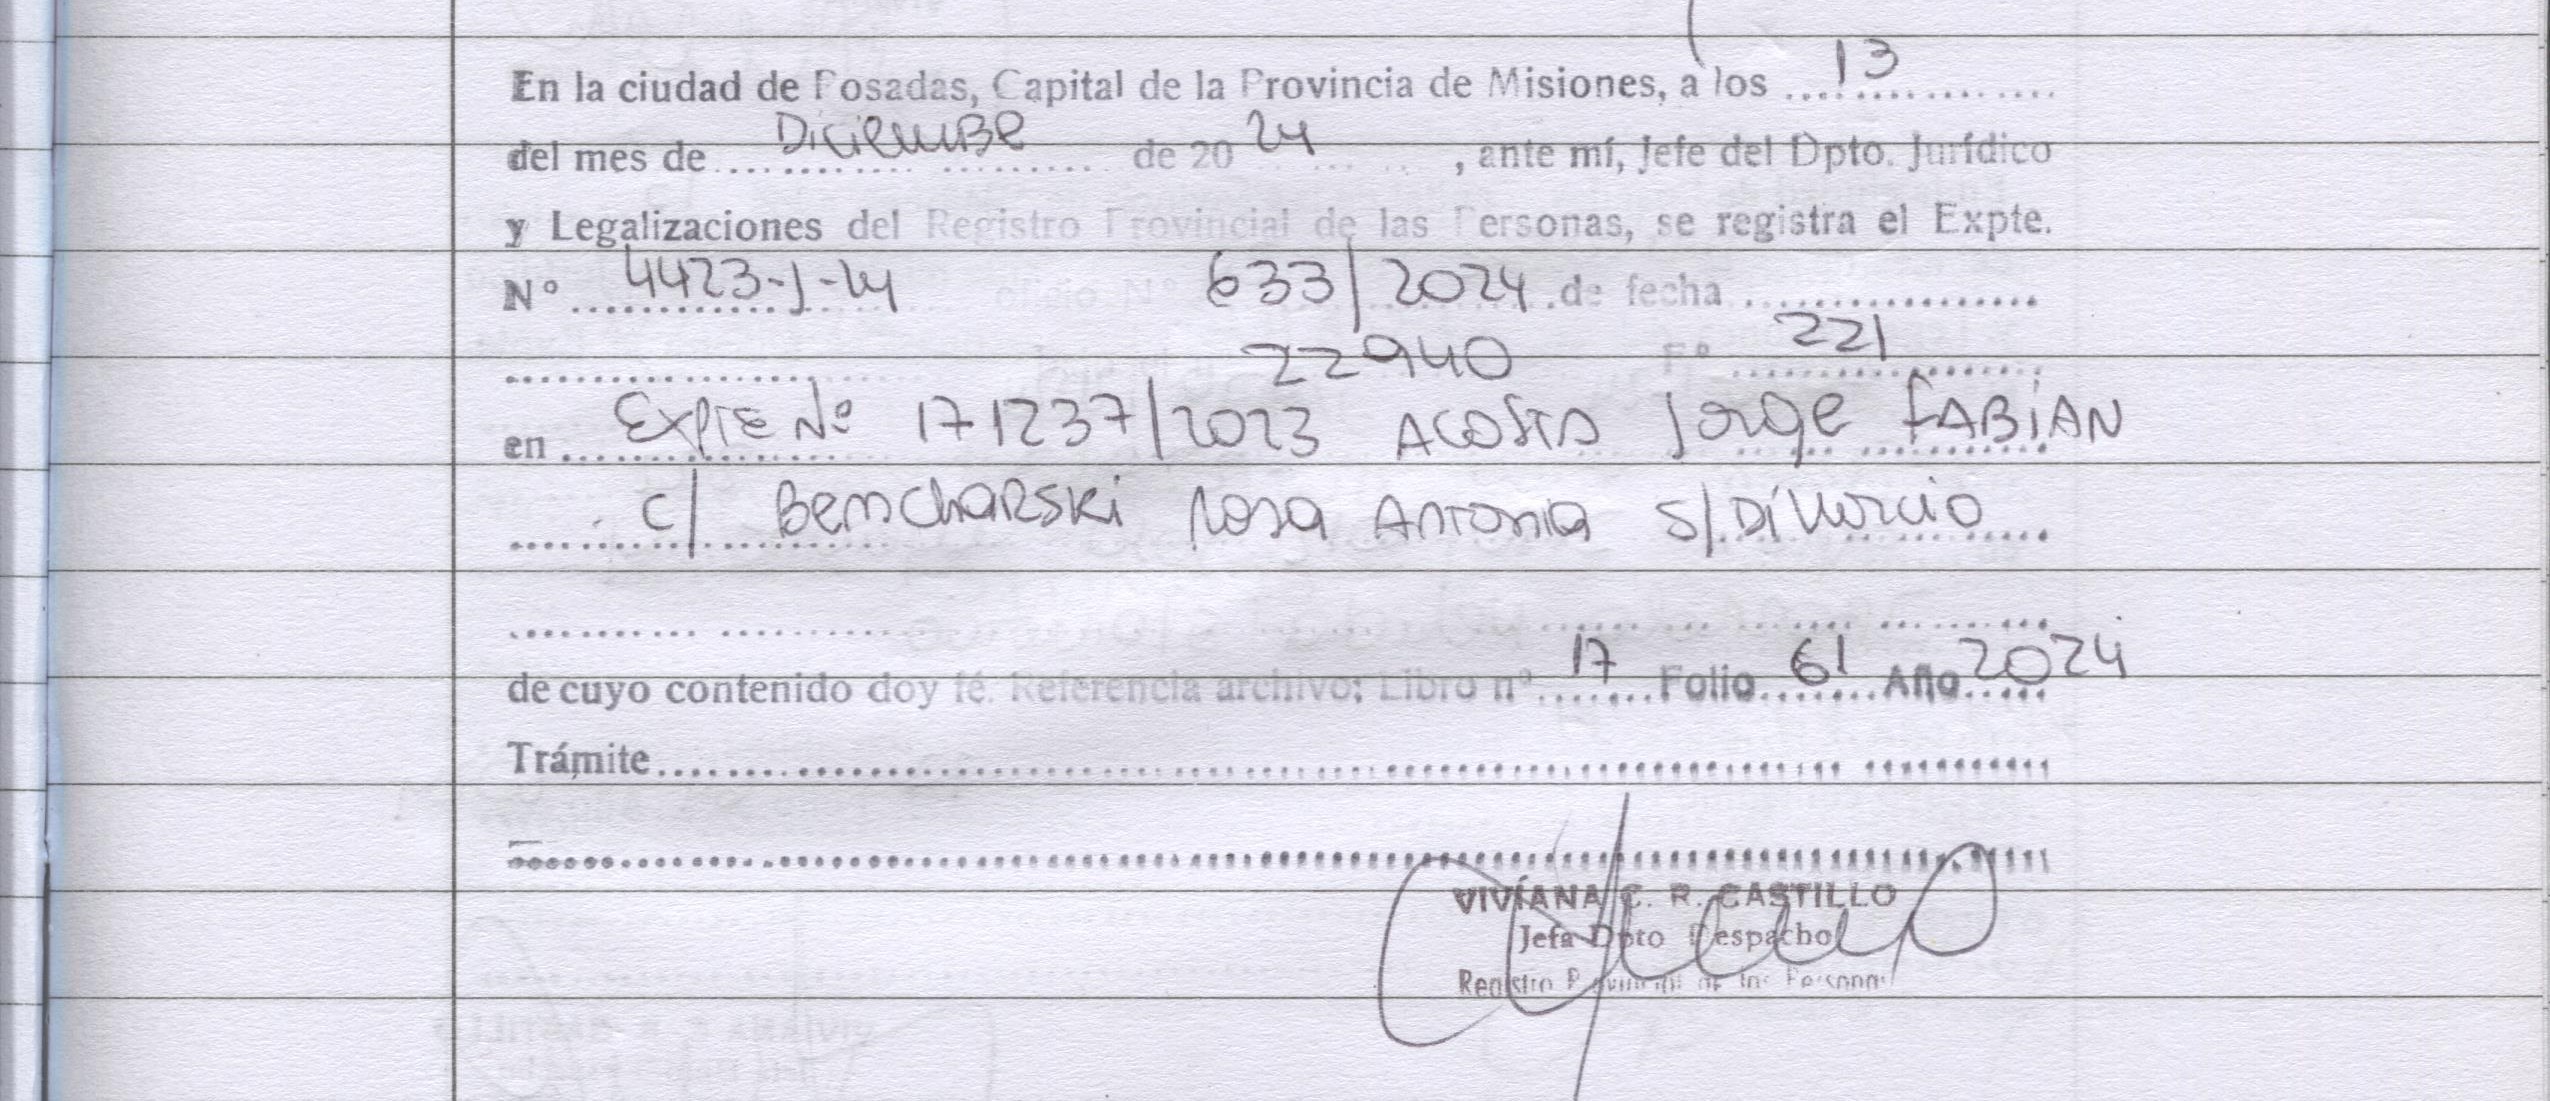 En la ciudad de Posadas, Capital de la Provincia de Misiones, a los ...13...
del mes de ...Diciembre... de 20 24 , ante mí, Jefe del Dpto. Jurídico
y Legalizaciones del Registro Provincial de las Personas, se registra el Expte.
Nº ...4423-J-24 oficio Nº 633/2024 de fecha ...
22940 Fº ...221...
en ...Expte Nº 171237/2023 Acosta Jorge Fabián
c/ Bencharski Rosa Antonia s/Divorcio
de cuyo contenido doy fé. Referencia archivo: Libro nº ...17... Folio ...61... Año 2024
Trámite...
VIVIANA C. R. CASTILLO
Jefa Dpto Despacho
Registro Provincial de las Personas